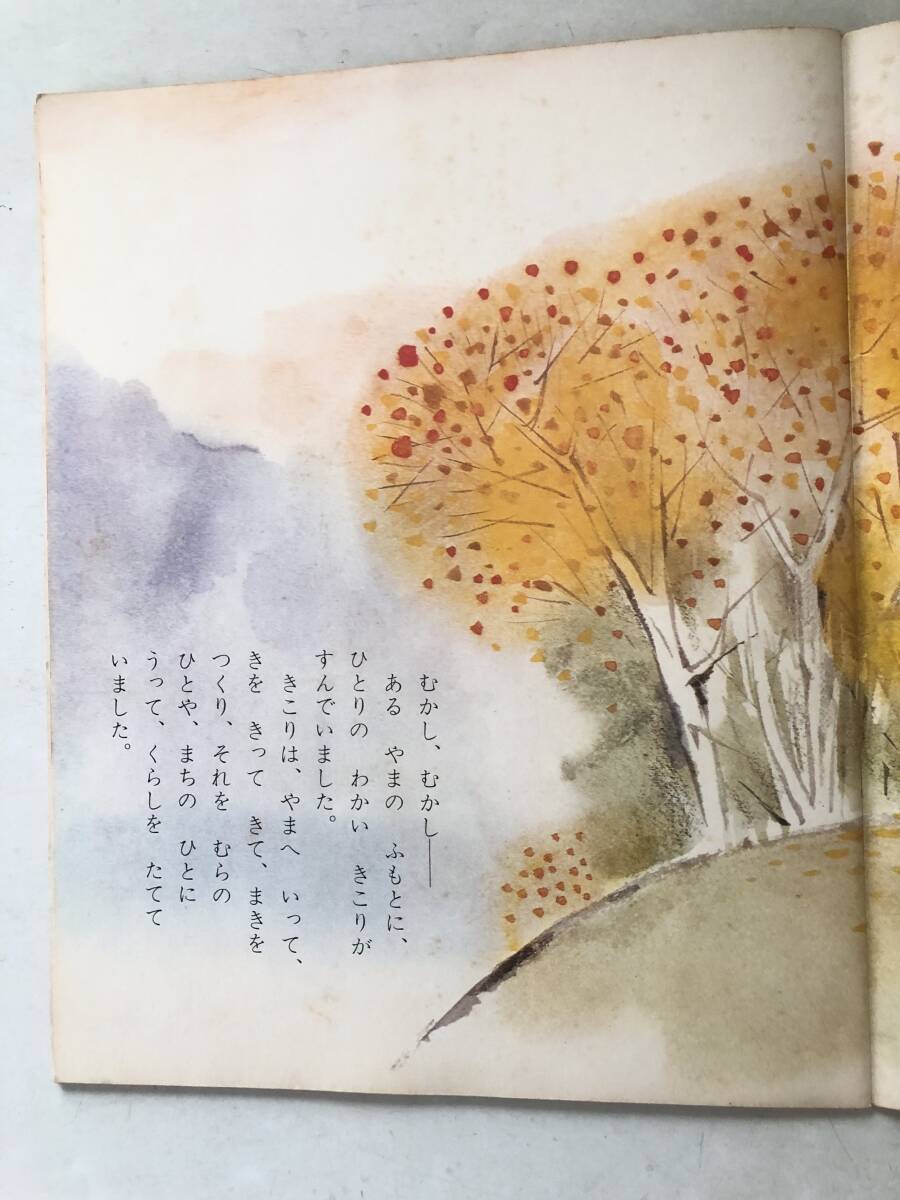 むかし、むかし――
ある　やまの　ふもとに、
ひとりの　わかい　きこりが
すんでいました。
きこりは、やまへ　いって、
きを　きって　きて、まきを
つくり、それを　むらの
ひとや、まちの　ひとに
うって、くらしを　たてて
いました。